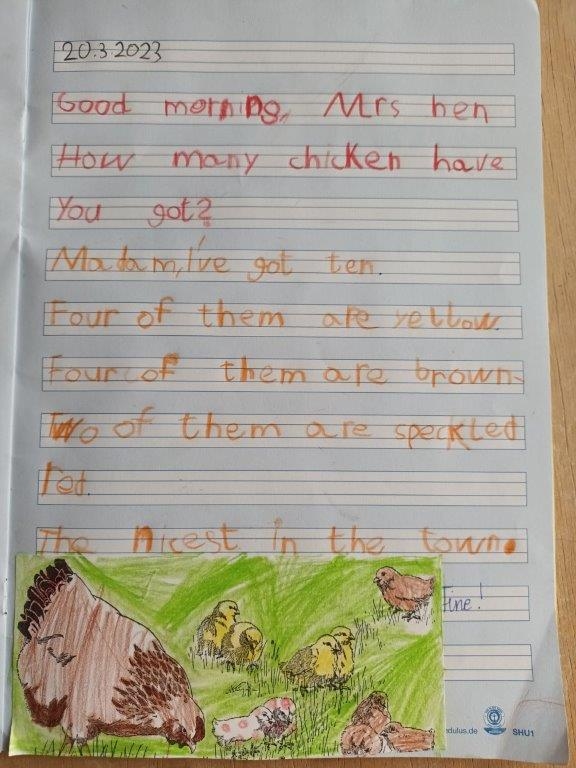 20.3.2023
Good morning, Mrs hen
How many chicken have
You got?
Madam, I've got ten.
Four of them are yellow.
Four of them are brown.
Two of them are speckled
red.
The nicest in the town.
Fine!
dulus.de
SHU1